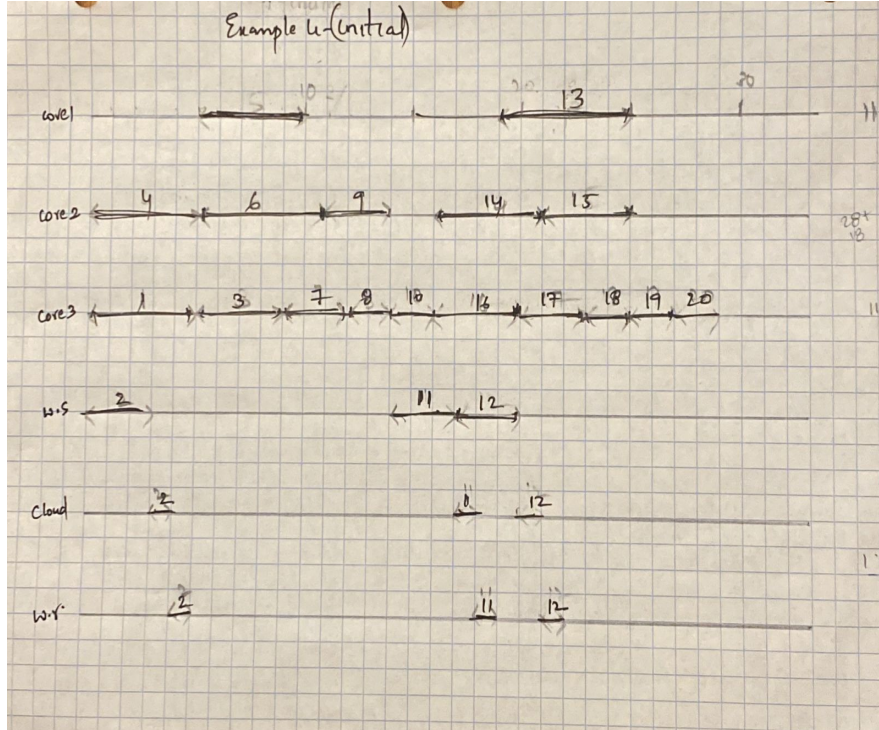 Example 4-(initial)
5 10 20 30
core1 13
core2 4 6 9 14 15
28+
18
core3 1 3 7 8 10 16 17 18 19 20
w.s 2 11 12
Cloud 2 11 12
w.r 2 11 12